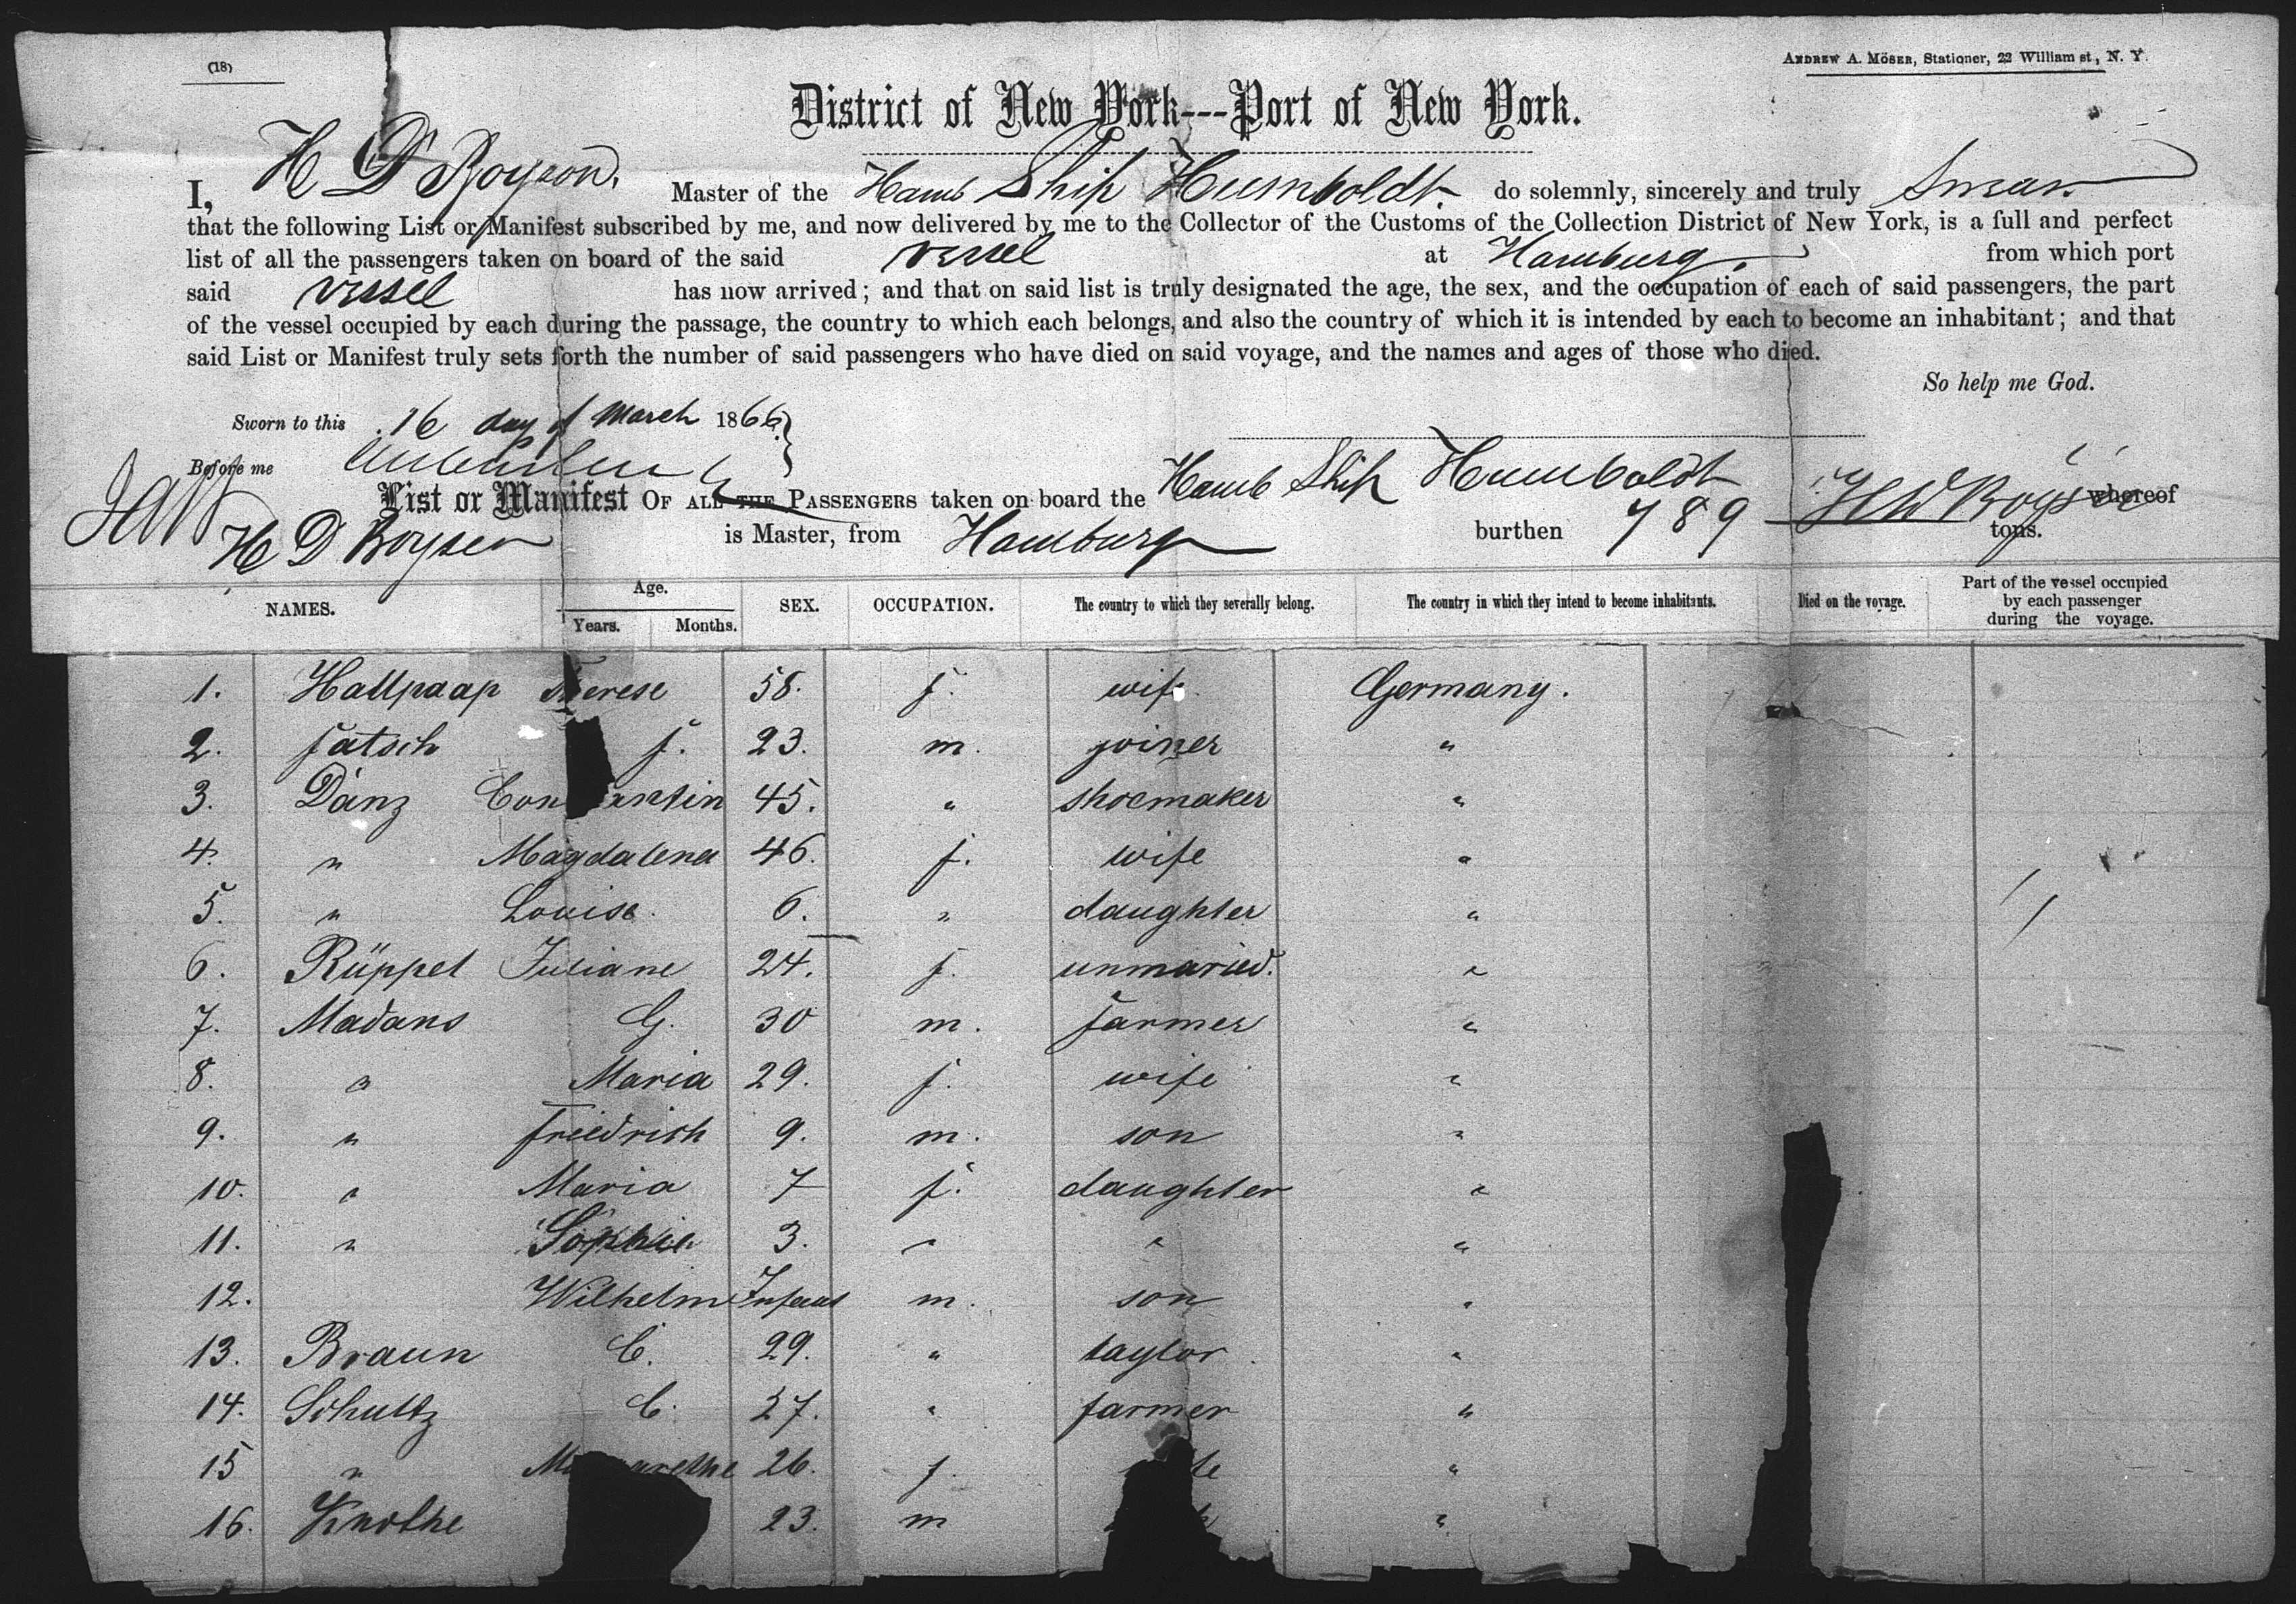 (18)
ANDREW A. MÖSER, Stationer, 22 William st., N. Y.
District of New York---Port of New York.
I, H D Boysen, Master of the Hamb Ship Humboldt. do solemnly, sincerely and truly swear
that the following List or Manifest subscribed by me, and now delivered by me to the Collector of the Customs of the Collection District of New York, is a full and perfect
list of all the passengers taken on board of the said vessel at Hamburg, from which port
said vessel has now arrived; and that on said list is truly designated the age, the sex, and the occupation of each of said passengers, the part
of the vessel occupied by each during the passage, the country to which each belongs, and also the country of which it is intended by each to become an inhabitant; and that
said List or Manifest truly sets forth the number of said passengers who have died on said voyage, and the names and ages of those who died.
So help me God.
Sworn to this 16 day of March 1866
Before me
List or Manifest OF ALL THE PASSENGERS taken on board the Hamb Ship Humboldt whereof
H D Boysen is Master, from Hamburg burthen 789 tons.
NAMES. Age. Years. Months. SEX. OCCUPATION. The country to which they severally belong. The country in which they intend to become inhabitants. Died on the voyage. Part of the vessel occupied by each passenger during the voyage.
1. Hallpaap Therese 58. f. wife Germany.
2. Fatsch f. 23. m. joiner "
3. Dänz Con antin 45. " shoemaker "
4. " Magdalena 46. f. wife "
5. " Louise. 6. " daughter "
6. Rüppel Juliane 24. f. unmaried. "
7. Madans G. 30 m. farmer "
8. " Maria 29. f. wife "
9. " Friedrich 9. m. son "
10. " Maria 7 f. daughter "
11. " Sophie 3. " " "
12. Wilhelm Infant m. son "
13. Braun C. 29. " taylor "
14. Schultz C. 27. " farmer "
15 " M garethe 26. f. "
16. Knothe 23. m "